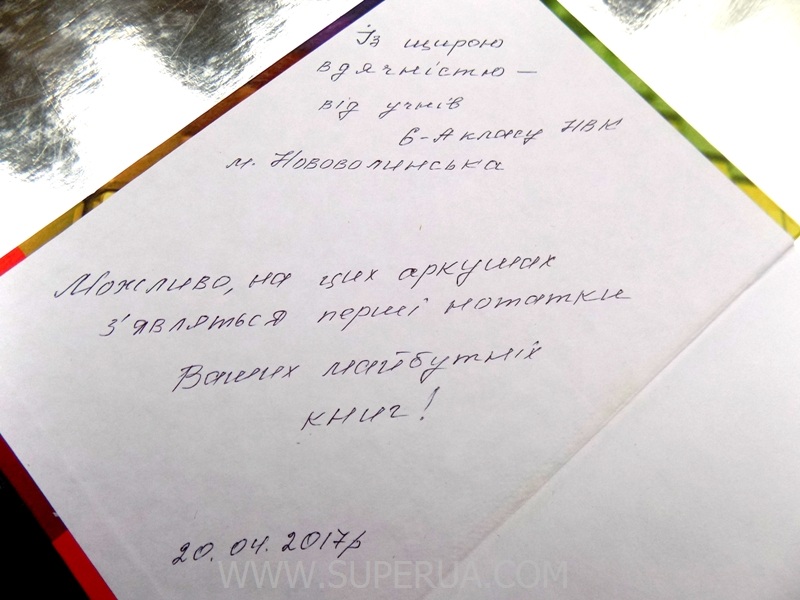 Із щирою
вдячністю —
від учнів
6-А класу НВК
м. Нововолинська
Можливо, на цих аркушах
з'являться перші нотатки
Ваших майбутніх
книг!
20.04.2017р
WWW.SUPERUA.COM